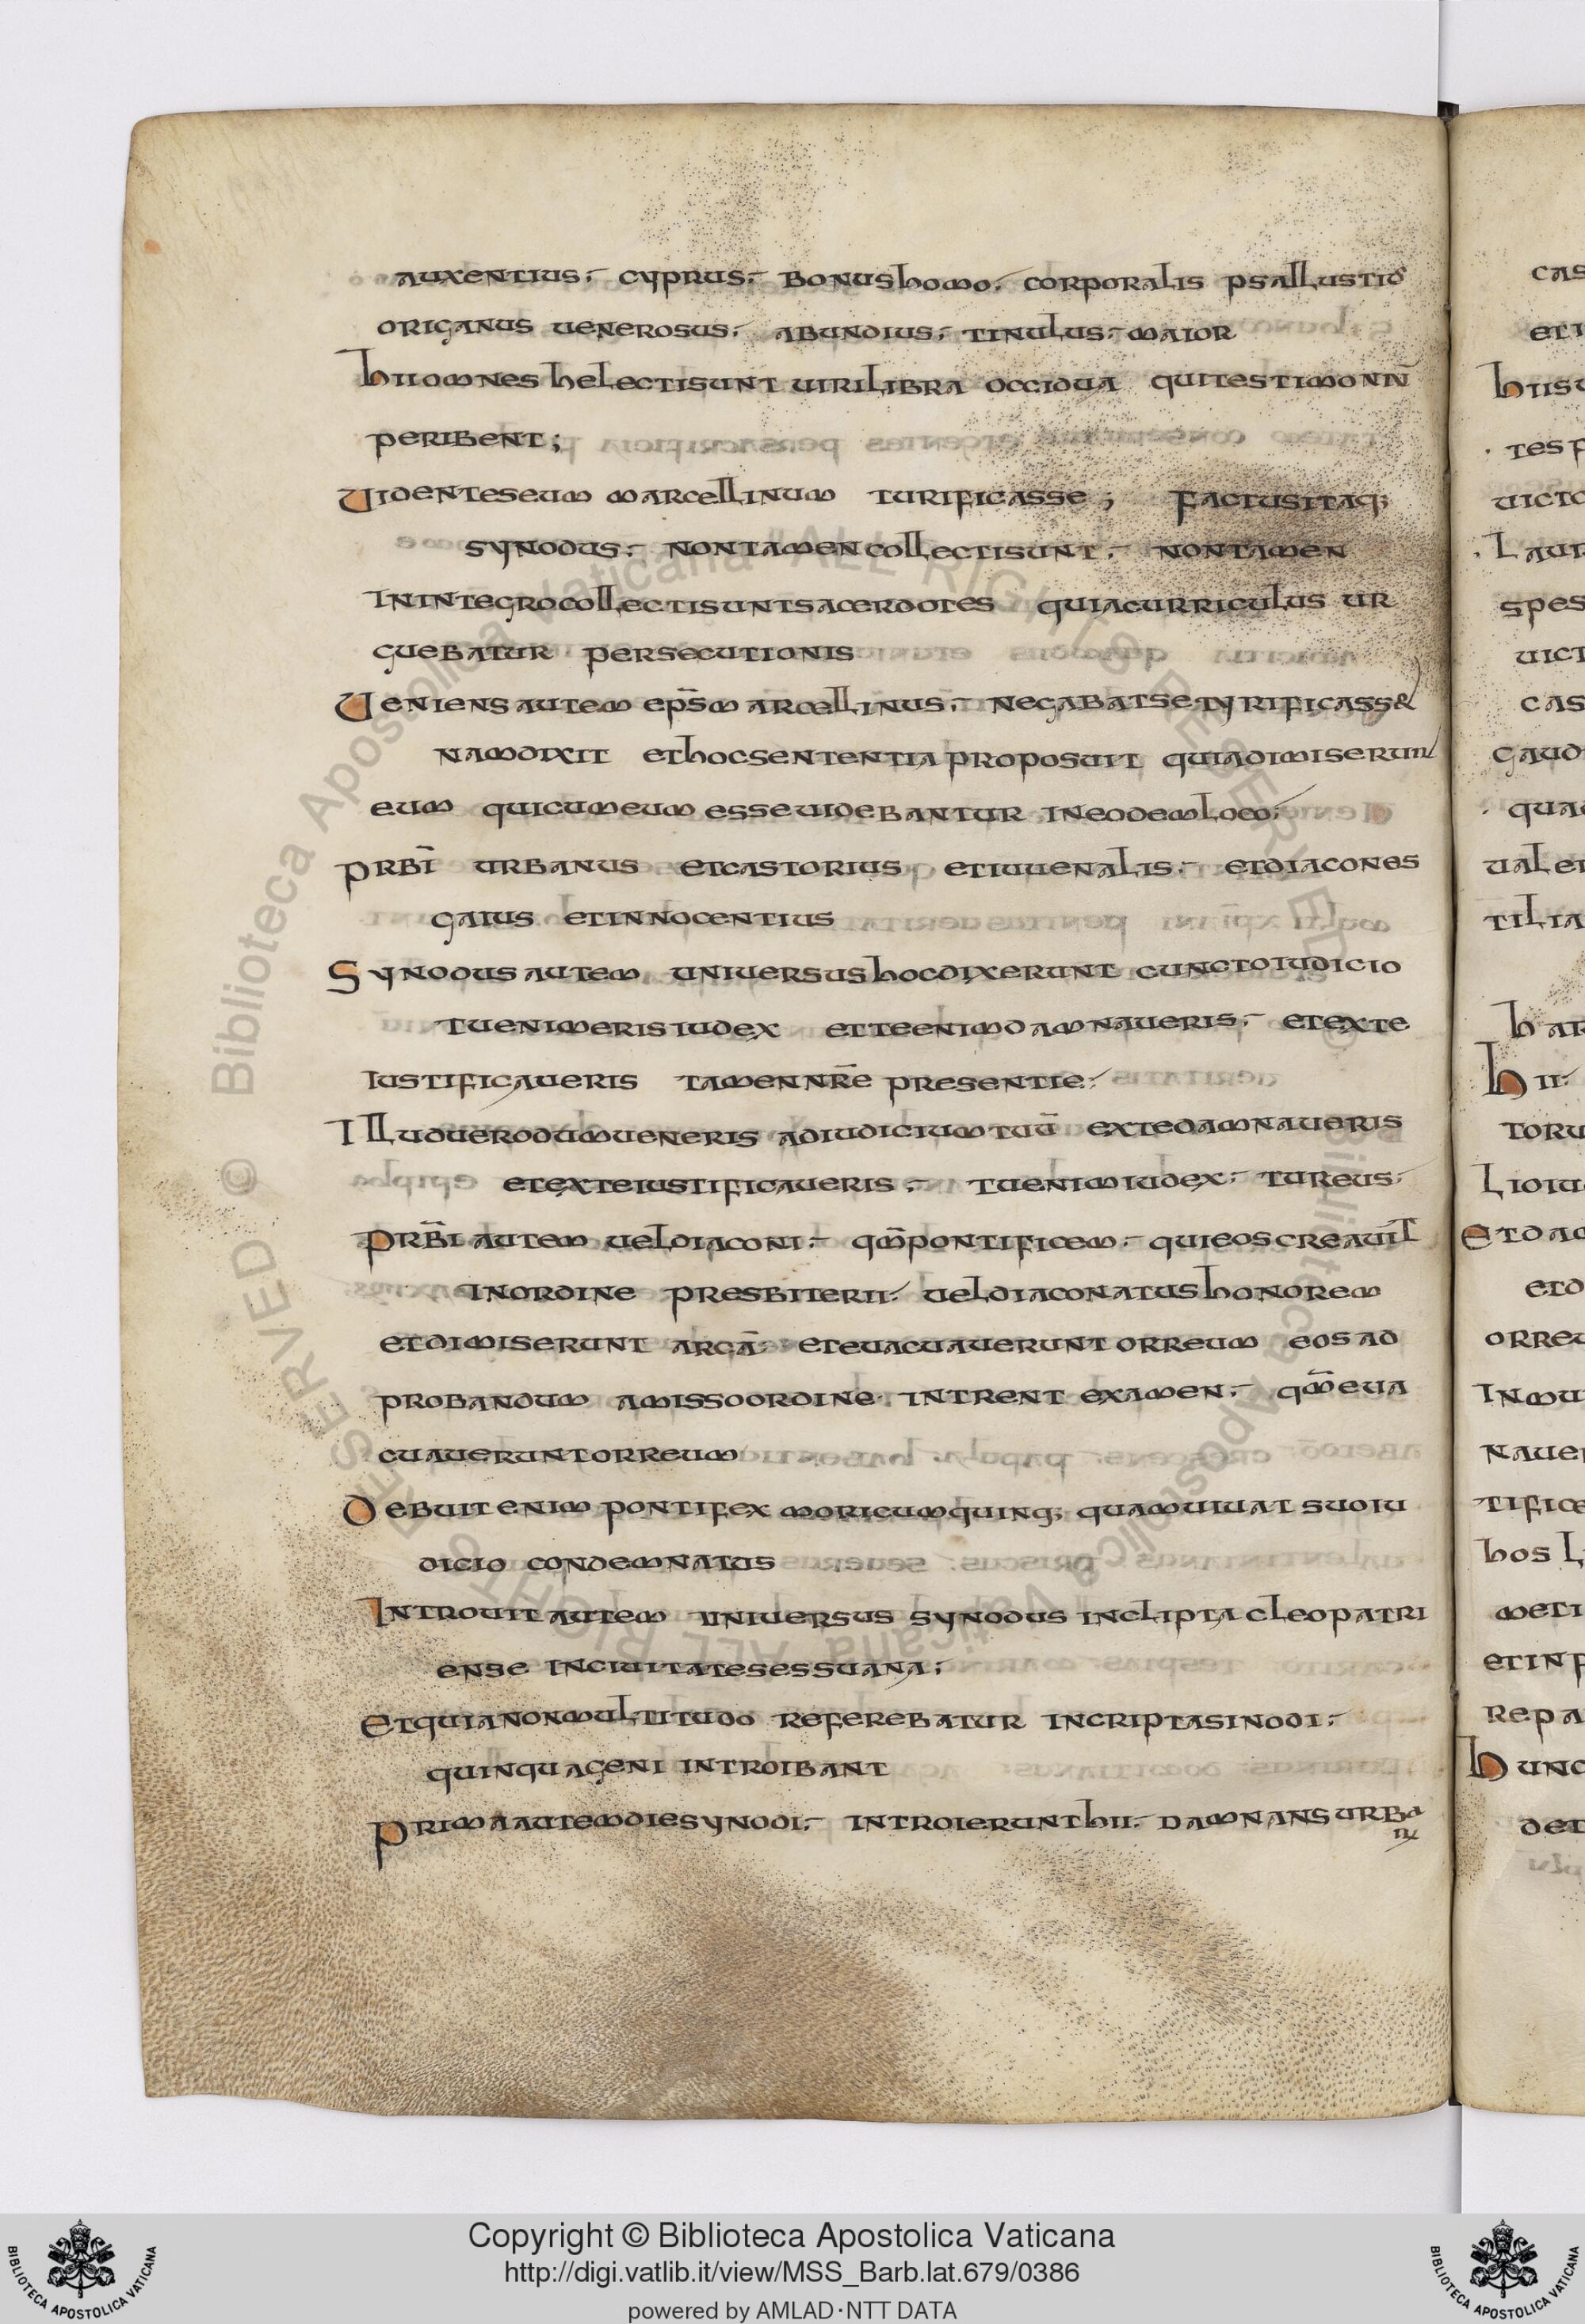 auxentius. cyprus. bonushomo. corporalis psallustio
origanus uenerosus. abundius. tinulus. maior
hiiomnes helectisunt uirilibra occidua quitestimoniū
peribent;
Uidenteseum marcellinum turificasse; Factusitaq;
synodus. nontamencollectisunt. nontamen
Inintegrocollectisuntsacerdotes quiacurriculus ur
guebatur persecutionis
Ueniensautem ep̄smarcellinus. negabatseturificass&
namdixit ethocsententiaproposuit quiadimiserunt
eum quicumeum esseuidebantur ineodemloco.
prbī urbanus etcastorius etiuuenalis. etdiacones
gaius etinnocentius
Synodusautem uniuersushocdixerunt cunctoiudicio
tuenimerisiudex etteenimdamnaueris. etexte
Iustificaueris tamennr̄e presentie.
Illuduerodumueneris adiudiciumtuū extedamnaueris
etexteiustificaueris. tuenimiudex. tureus.
prb̄i autem ueldiaconi. qm̄pontificem. quieoscreauit
inordine presbiterii. ueldiaconatushonorem
etdimiserunt arcā. eteuacuauerunt orreum eos ad
probandum amissoordine. intrent examen. qm̄eua
cuaueruntorreum
Debuit enim pontifex moricumquinq; quamuiuat suoiu
dicio condemnatus
Introuit autem uniuersus synodus inclipta cleopatri
ense inciuitatesessuana;
Etquianonmultitudo referebatur incriptasinodi.
quinquageni introibant
primaautemdiesynodi. introierunthii. damnansurba
nx
cas
eti
hiisu
tesp
uicto
Laur
spes
uict
cas
gaudi
qua
ualer
tilia
har
hii.
toru
Lioiu
etdac
etd
orreu
Inmu
nauer
tifice
hos L
meti
etinp
repa
hunc
det
Copyright © Biblioteca Apostolica Vaticana
http://digi.vatlib.it/view/MSS_Barb.lat.679/0386
powered by AMLAD·NTT DATA
BIBLIOTECA APOSTOLICA VATICANA
BIBLIOTECA APOSTOLICA VATICANA
© Biblioteca Apostolica Vaticana "ALL RIGHTS RESERVED"